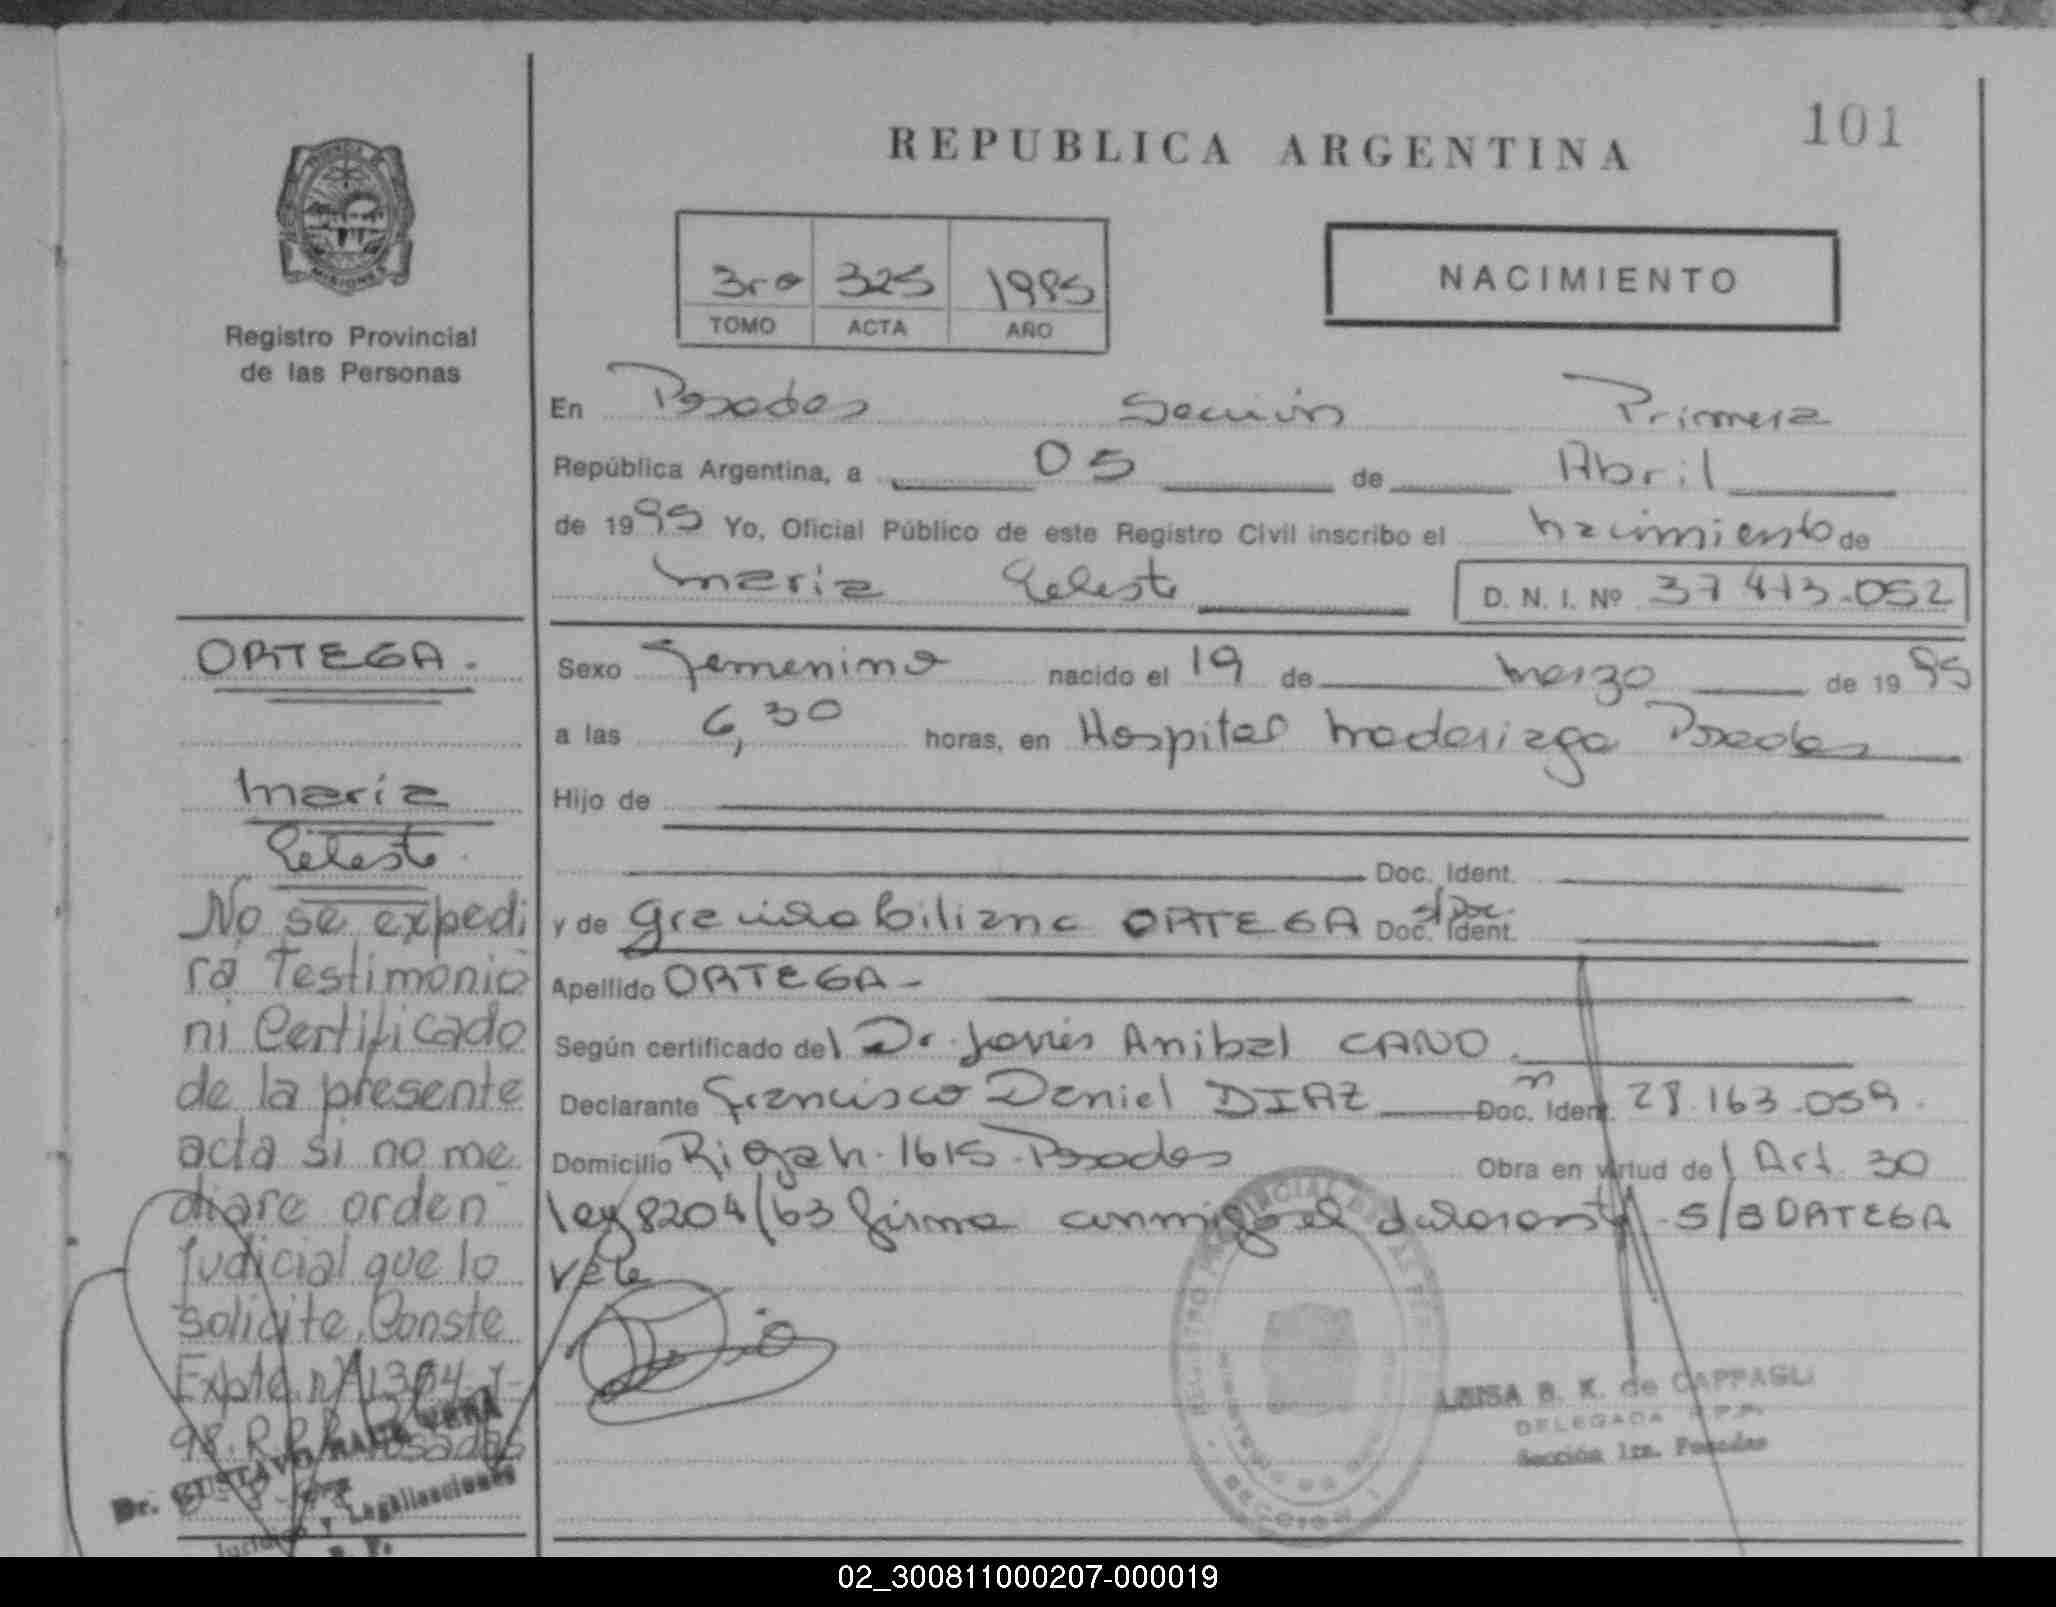 101
REPUBLICA ARGENTINA
PROVINCIA DE
MISIONES
Registro Provincial
de las Personas
3ro 325 1995
TOMO ACTA AÑO
NACIMIENTO
En Posadas Sección Primera
República Argentina, a 05 de Abril
de 1995 Yo, Oficial Público de este Registro Civil inscribo el nacimiento de
Maria Celeste D. N. I. Nº 37 413.052
ORTEGA.
Maria
Celeste
No se expedi
rá Testimonio
ni Certificado
de la presente
acta si no me
diare orden
Judicial que lo
solicite. Conste
Expte. nº 1304-J-
98. R.P.P. Posadas
Dr. GUSTAVO VERA
y Legalizaciones
Sexo Femenino nacido el 19 de Marzo de 1995
a las 6,30 horas, en Hospital Madariaga Posadas
Hijo de
Doc. Ident.
y de Graciela Biliana ORTEGA Doc. Ident. s/Doc.
Apellido ORTEGA-
Según certificado del Dr. Javier Anibal CANO.
Declarante Francisco Daniel DIAZ Doc. Ident. n 28.163.059.
Domicilio 1615 - Posadas Obra en virtud del Art. 30
ley 8204/63 firma conmigo el declarante - S/B ORTEGA
Vale
REGISTRO PROVINCIAL DE LAS PERSONAS
SECCION 1
LUISA B. K. de CAPPAGLI
DELEGADA R.P.P.
Sección 1ra. Posadas
02_300811000207-000019